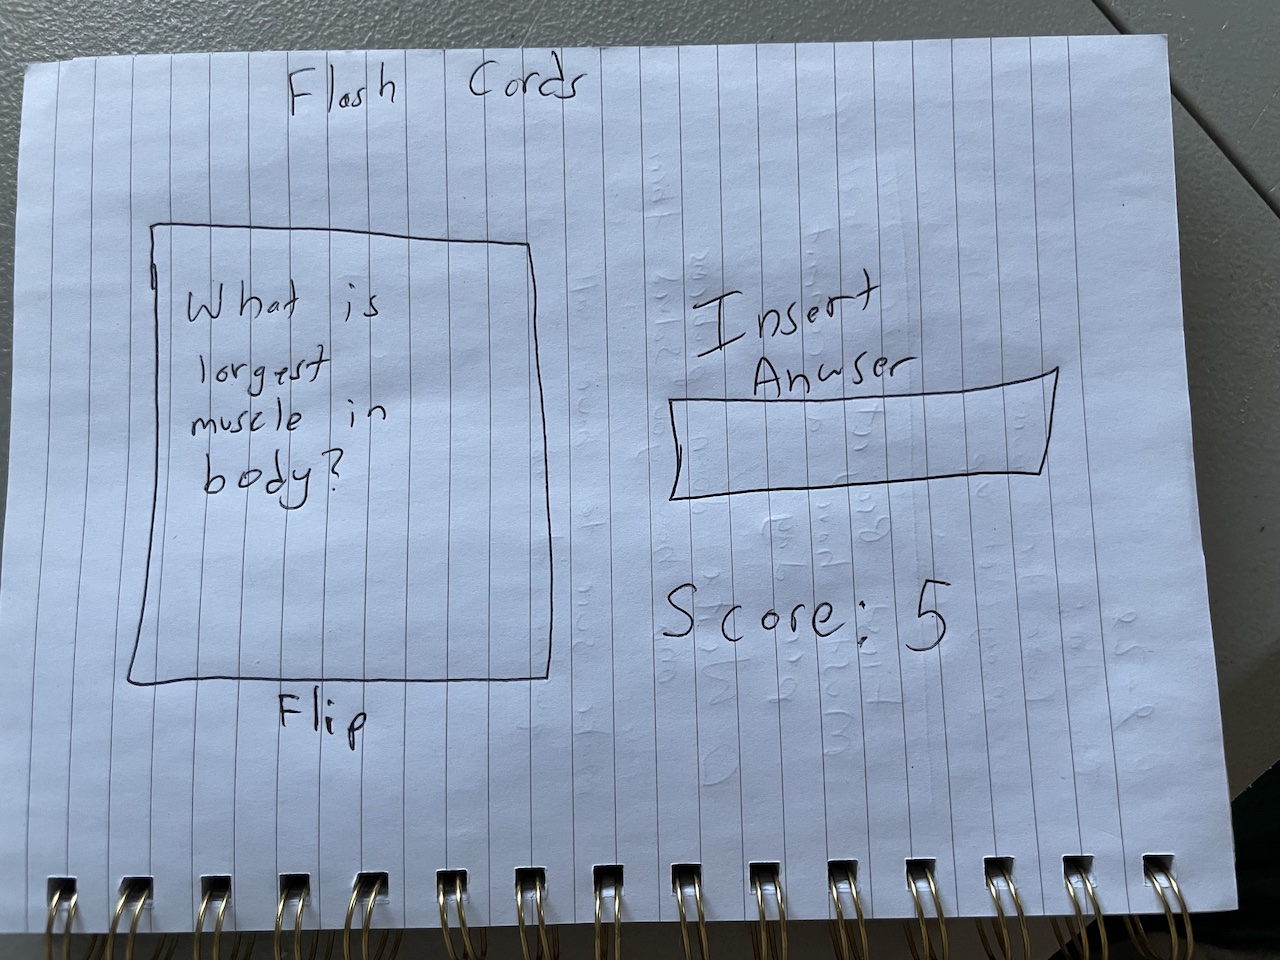 Flash Cards
What is
largest
muscle in
body?
Flip
Insert
Anwser
Score: 5